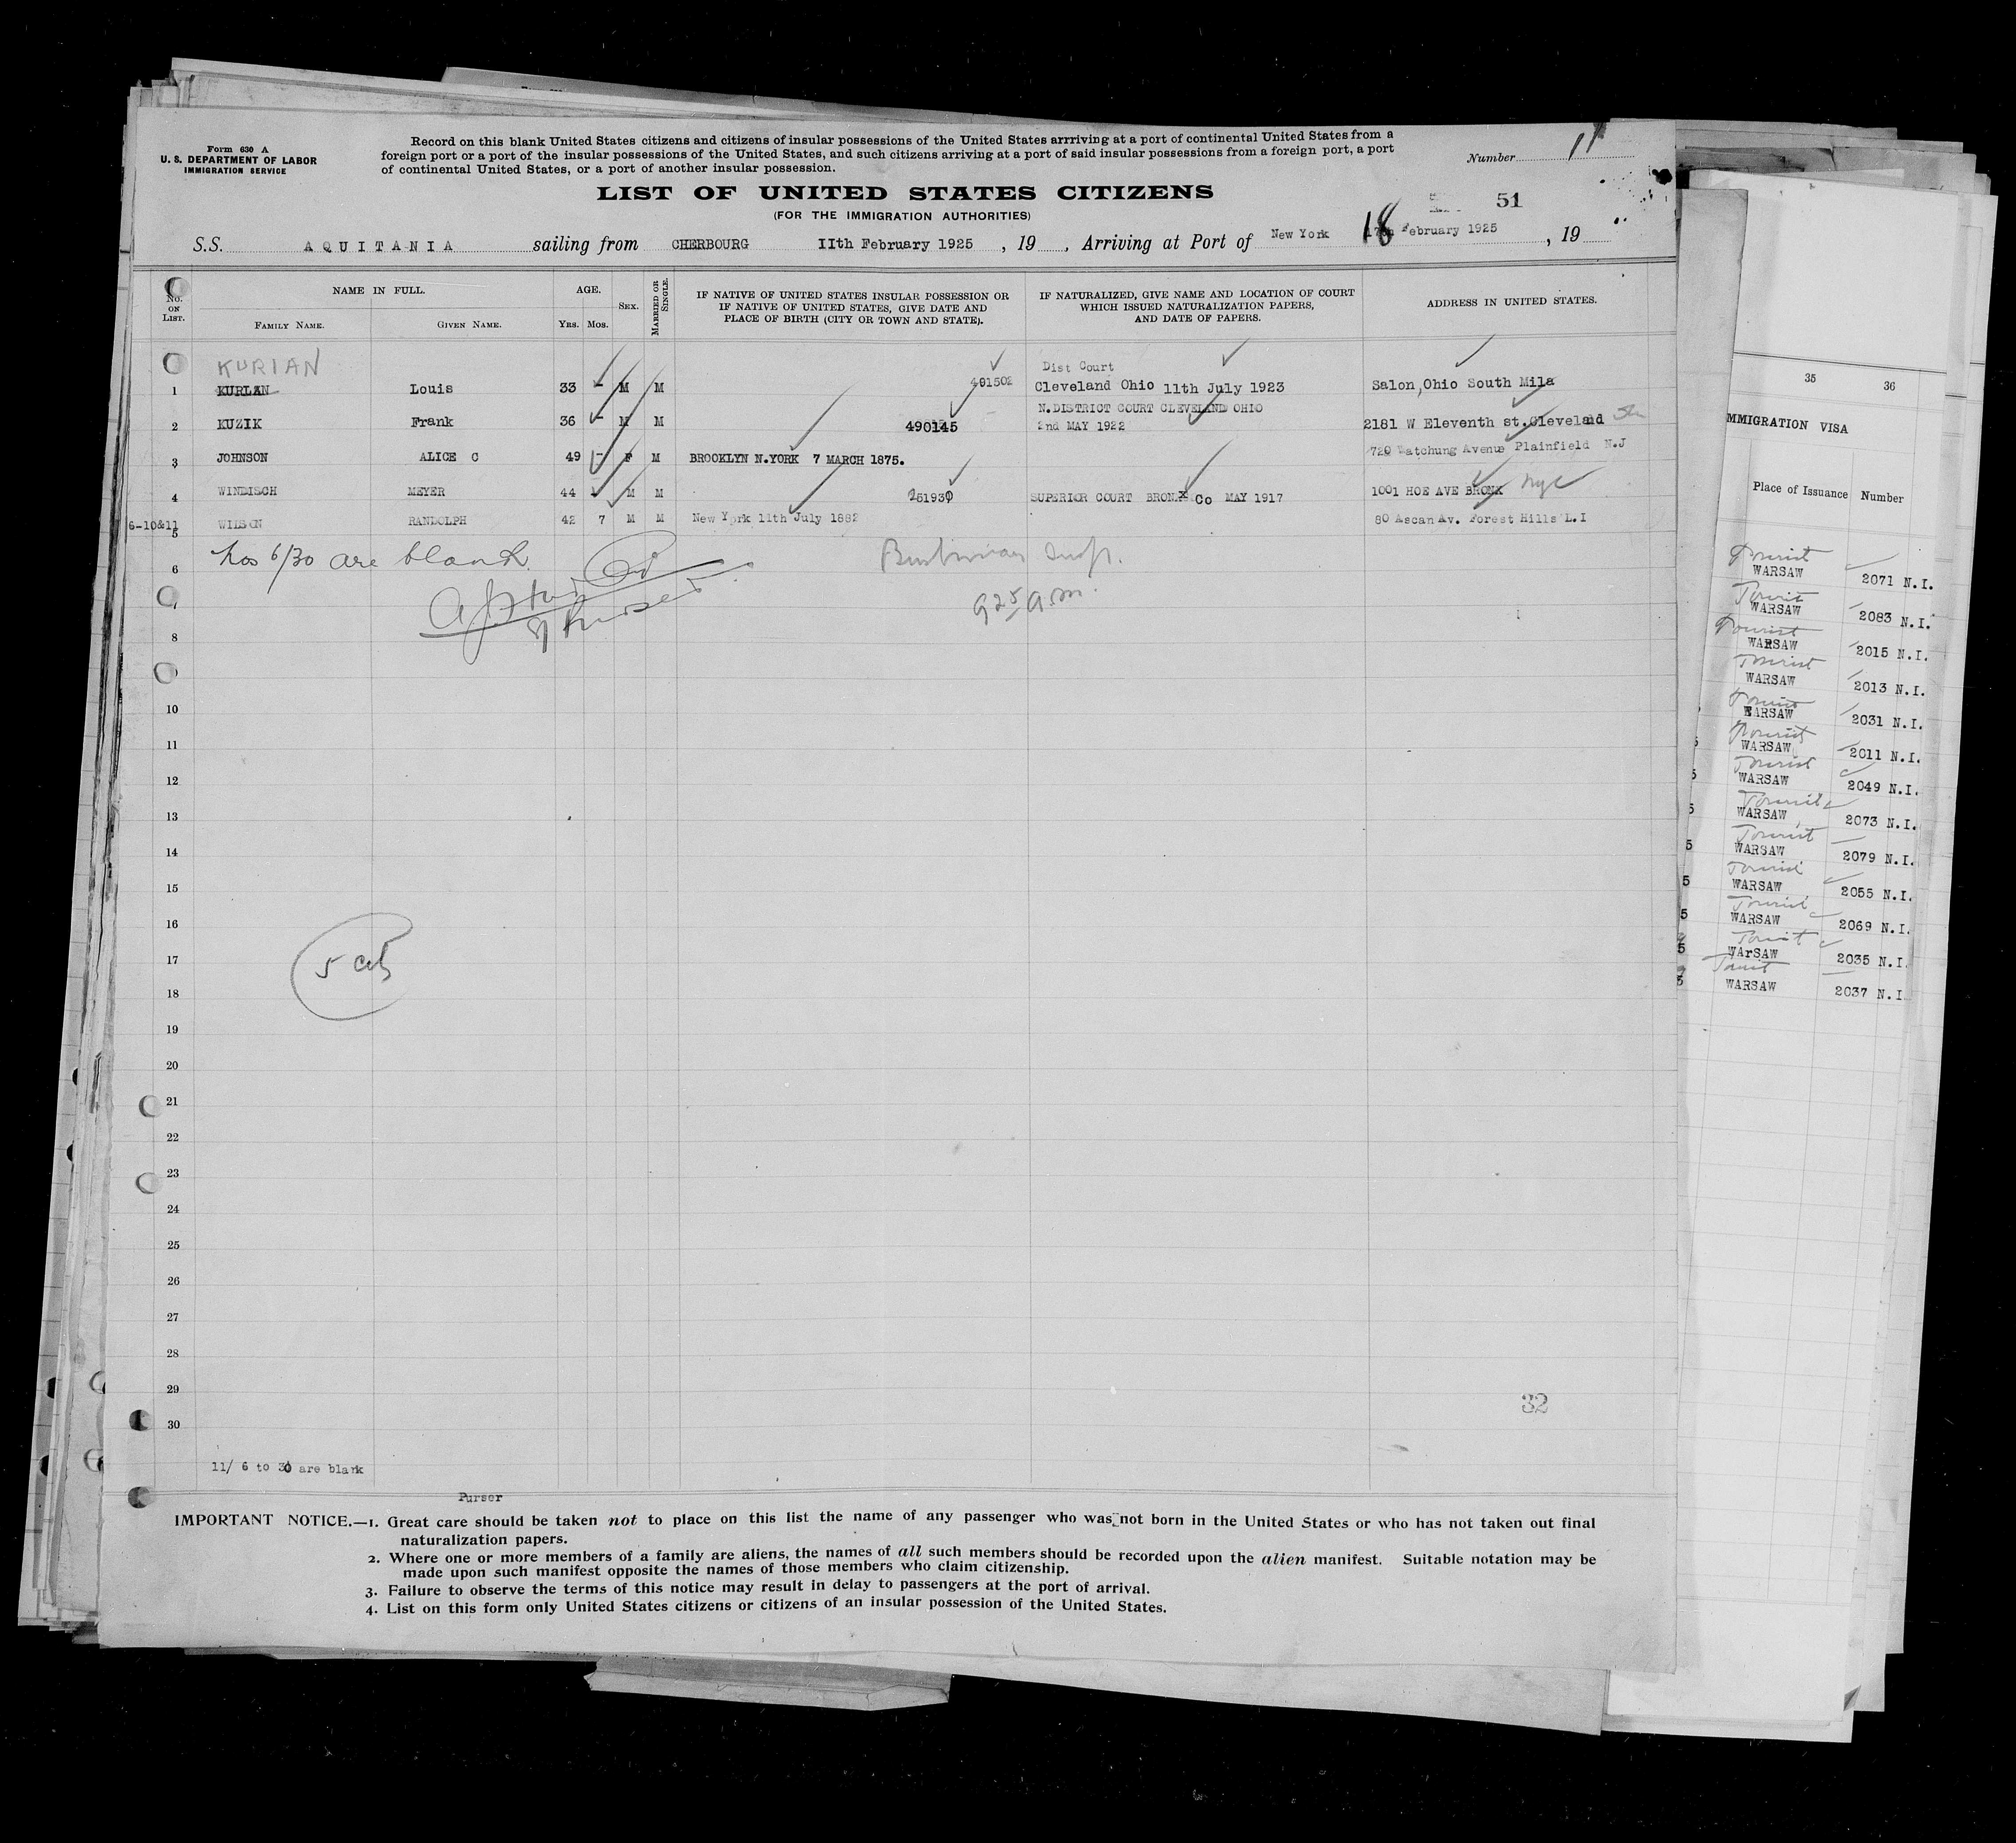 Form 630 A
U. S. DEPARTMENT OF LABOR
IMMIGRATION SERVICE
Record on this blank United States citizens and citizens of insular possessions of the United States arrriving at a port of continental United States from a
foreign port or a port of the insular possessions of the United States, and such citizens arriving at a port of said insular possessions from a foreign port, a port
of continental United States, or a port of another insular possession.
Number 11
LIST OF UNITED STATES CITIZENS
(FOR THE IMMIGRATION AUTHORITIES)
51
S.S. AQUITANIA sailing from CHERBOURG IIth February 1925 , 19 , Arriving at Port of New York 18 February 1925 , 19
No. ON LIST.
NAME IN FULL.
FAMILY NAME. GIVEN NAME.
AGE.
YRS. MOS.
SEX.
MARRIED OR SINGLE.
IF NATIVE OF UNITED STATES INSULAR POSSESSION OR
IF NATIVE OF UNITED STATES, GIVE DATE AND
PLACE OF BIRTH (CITY OR TOWN AND STATE).
IF NATURALIZED, GIVE NAME AND LOCATION OF COURT
WHICH ISSUED NATURALIZATION PAPERS,
AND DATE OF PAPERS.
ADDRESS IN UNITED STATES.
KURIAN Dist Court
1 KURLAN Louis 33 - M M 491502 Cleveland Ohio 11th July 1923 Salon,Ohio South Mila
N.DISTRICT COURT CLEVELAND OHIO
2 KUZIK Frank 36 - M M 490145 2nd MAY 1922 2181 W Eleventh st.Cleveland
3 JOHNSON ALICE C 49 - F M BROOKLYN N.YORK 7 MARCH 1875. 720 Watchung Avenue Plainfield N.J
4 WINDISCH MEYER 44 M M 251930 SUPERIOR COURT BRONX Co MAY 1917 1001 HOE AVE BRONX nyc
6-10&11
5 WILSON RANDOLPH 42 7 M M New York 11th July 1882 80 Ascan Av. Forest Hills L.I
6 Nos 6/30 are blank.
Insp.
7 Purser
9 25 a.m.
8
10
11
12
13
14
15
16
17 5 cits
18
19
20
21
22
23
24
25
26
27
28
29
30
32
11/ 6 to 30 are blank
Purser
IMPORTANT NOTICE.—1. Great care should be taken not to place on this list the name of any passenger who was not born in the United States or who has not taken out final
naturalization papers.
2. Where one or more members of a family are aliens, the names of all such members should be recorded upon the alien manifest. Suitable notation may be
made upon such manifest opposite the names of those members who claim citizenship.
3. Failure to observe the terms of this notice may result in delay to passengers at the port of arrival.
4. List on this form only United States citizens or citizens of an insular possession of the United States.
35 36
MMIGRATION VISA
Place of Issuance Number
Tourist
WARSAW 2071 N.I.
Tourist
WARSAW 2083 N.I.
Tourist
WARSAW 2015 N.I.
Tourist
WARSAW 2013 N.I.
Tourist
WARSAW 2031 N.I.
Tourist
WARSAW 2011 N.I.
Tourist
WARSAW 2049 N.I.
Tourist
WARSAW 2073 N.I.
Tourist
WARSAW 2079 N.I.
Tourist
WARSAW 2055 N.I.
Tourist
WARSAW 2069 N.I.
Tourist
WArSAW 2035 N.I.
Tourist
WARSAW 2037 N.I